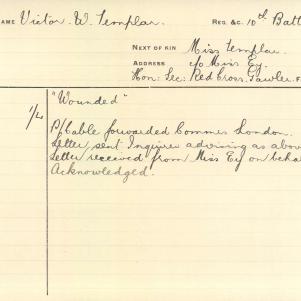 NAME Victor. W. Templar. REG. &C. 10th Batt
NEXT OF KIN Miss Templar.
ADDRESS c/o Miss Ey.
Hon: Sec: Red Cross. Gawler. F
"Wounded"
1/4 P/Cable forwarded Commr London.
Letter sent Inquirer advising as abov
Letter received from Miss Ey on beha
Acknowledged.